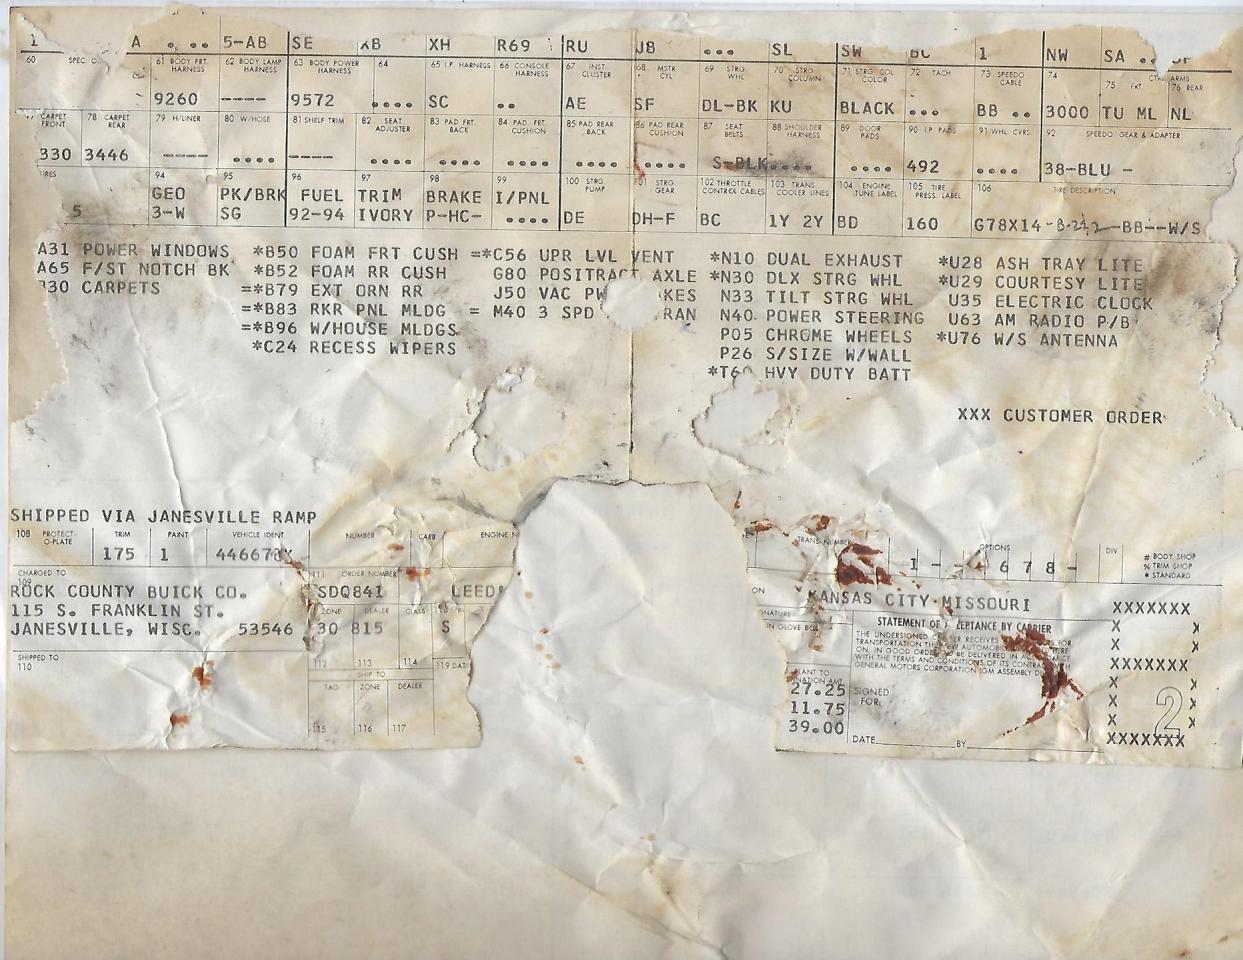 1 A 5-AB SE XB XH R69 RU JB ••• SL SW BC 1 NW SA
60 SPEC. 61 BODY FRT. HARNESS 62 BODY LAMP HARNESS 63 BODY POWER HARNESS 64 65 I.P. HARNESS 66 CONSOLE HARNESS 67 INST. CLUSTER 68 MSTR CYL 69 STRG WHL 70 STRG COLUMN 71 STRG COL COLOR 72 TACH 73 SPEEDO CABLE 74 75 FRT ARMS 76 REAR
9260 ---- 9572 •••• SC •• AE SF DL-BK KU BLACK ••• BB •• 3000 TU ML NL
CARPET FRONT 78 CARPET REAR 79 H/LINER 80 W/HOSE 81 SHELF TRIM 82 SEAT ADJUSTER 83 PAD. FRT. BACK 84 PAD. FRT. CUSHION 85 PAD REAR BACK 86 PAD REAR CUSHION 87 SEAT BELTS 88 SHOULDER HARNESS 89 DOOR PADS 90 I.P PADS 91 WHL CVRS 92 SPEEDO GEAR & ADAPTER
330 3446 ---- •••• ---- •••• •••• •••• •••• •••• S-BLK •••• •••• 492 •••• 38-BLU -
94 95 96 97 98 99 100 STRG. PUMP 101 STRG GEAR 102 THROTTLE CONTROL CABLES 103 TRANS. COOLER LINES 104 ENGINE TUNE LABEL 105 TIRE PRESS. LABEL 106 TIRE DESCRIPTION
GEO PK/BRK FUEL TRIM BRAKE I/PNL
5 3-W SG 92-94 IVORY P-HC- •••• DE DH-F BC 1Y 2Y BD 160 G78X14 --BB--W/S
A31 POWER WINDOWS *B50 FOAM FRT CUSH =*C56 UPR LVL VENT *N10 DUAL EXHAUST *U28 ASH TRAY LITE
A65 F/ST NOTCH BK *B52 FOAM RR CUSH G80 POSITRACT AXLE *N30 DLX STRG WHL *U29 COURTESY LITE
B30 CARPETS =*B79 EXT ORN RR J50 VAC PW KES N33 TILT STRG WHL U35 ELECTRIC CLOCK
=*B83 RKR PNL MLDG = M40 3 SPD RAN N40 POWER STEERING U63 AM RADIO P/B
=*B96 W/HOUSE MLDGS P05 CHROME WHEELS *U76 W/S ANTENNA
*C24 RECESS WIPERS P26 S/SIZE W/WALL
*T60 HVY DUTY BATT
XXX CUSTOMER ORDER
SHIPPED VIA JANESVILLE RAMP
108 PROTECT-O-PLATE TRIM PAINT VEHICLE IDENT NUMBER CARB ENGINE N TRANS. NUMBER OPTIONS DIV # BODY SHOP
% TRIM SHOP
175 1 446678X 1 - - 678- • STANDARD
CHARGED TO
109 111 ORDER NUMBER
ROCK COUNTY BUICK CO. SDQ841 LEED KANSAS CITY MISSOURI XXXXXXX
115 S. FRANKLIN ST. ZONE DEALER CLASS STATEMENT OF ACCEPTANCE BY CARRIER X X
JANESVILLE, WISC. 53546 30 815 S X X
SHIPPED TO
110 112 113 114 119 DAT XXXXXXX
SHIP TO
TAG ZONE DEALER
27.25 SIGNED
11.75 FOR:
39.00
2
115 116 117 DATE BY XXXXXXX